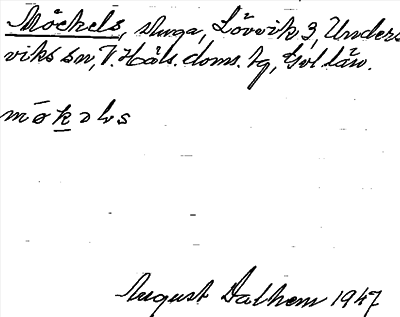 Möckels, stuga, Lövvik 3, Unders
viks sn, V. Häls. doms. tg, Gvl län.
mø̄kəls
August Dalhem 1947